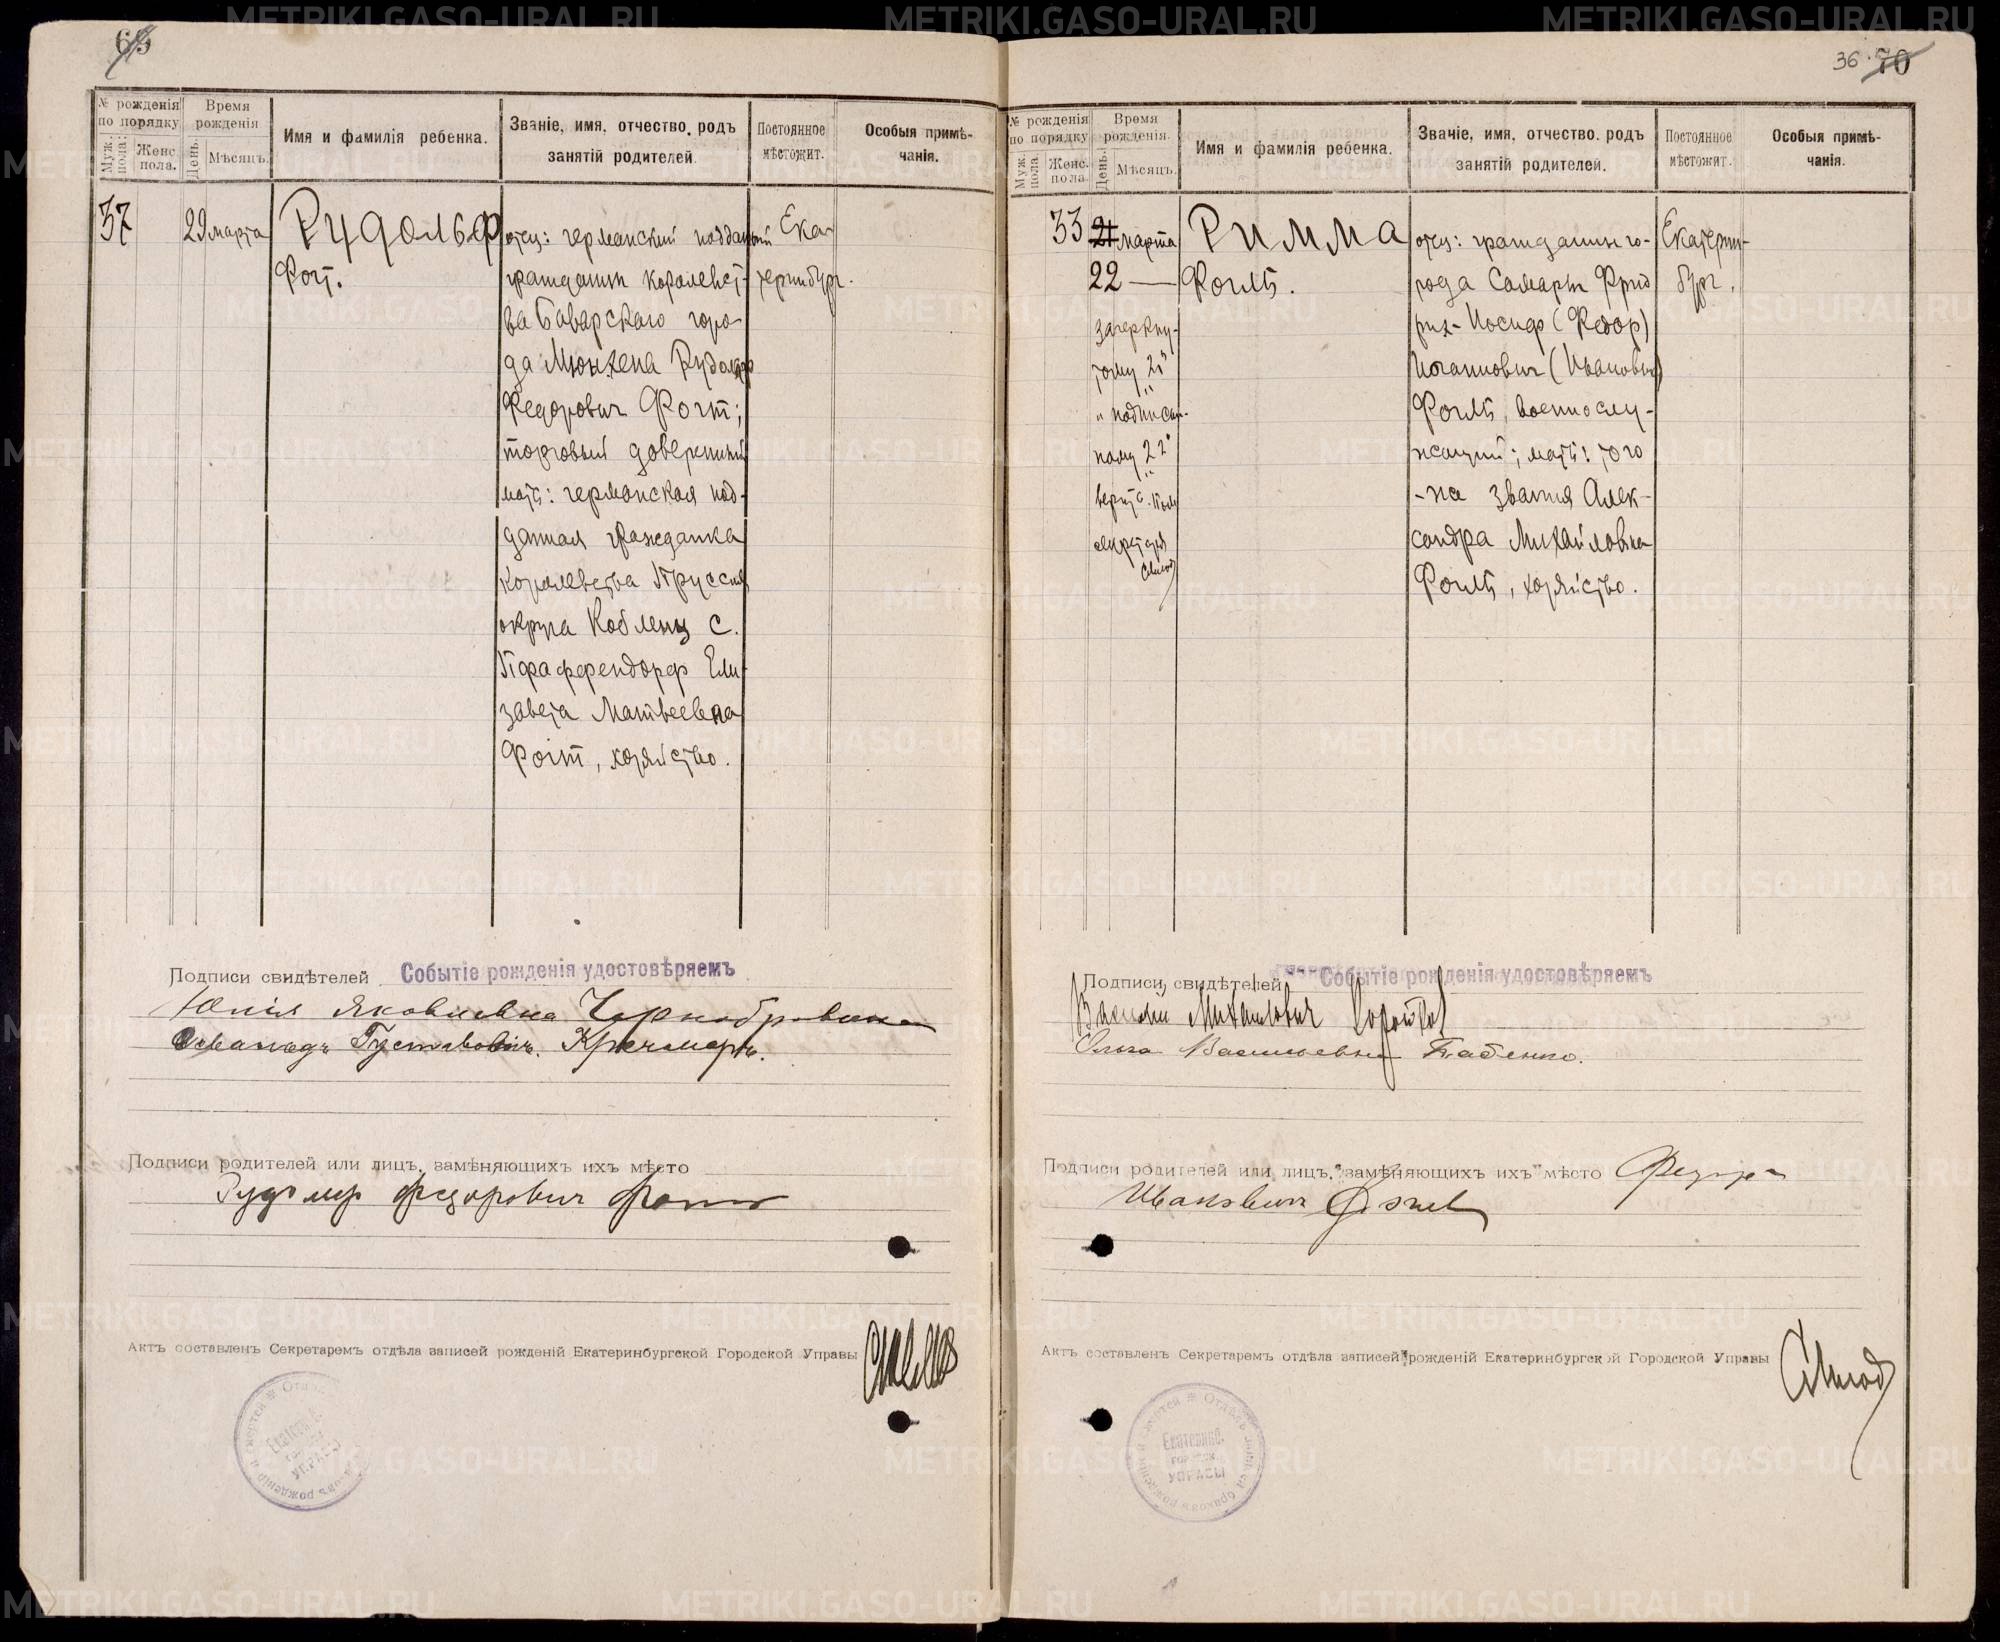 METRIKI.GASO-URAL.RU
69
№ рожденія по порядку
Муж. пола.
Женс. пола.
Время рожденія
День.
Мѣсяцъ.
Имя и фамилія ребенка.
Званіе, имя, отчество, родъ занятій родителей.
Постоянное мѣстожит.
Особыя примѣчанія.
37
29 марта
Рудольф
Фогт.
отец: германский подданный
гражданин королевст-
ва Баварского горо-
да Мюнхена Рудольф
Федорович Фогт;
торговый доверенный
мать: германская под-
данная гражданка
Королевства Пруссия
округа Кобленц с.
Пфаффендорф Ели-
завета Матвеевна
Фогт, хозяйство.
Ека-
теринбург.
Подписи свидѣтелей Событіе рожденія удостовѣряемъ
Юлія Яковлевна Чернобровина
Освальдъ Густавовичъ Кречмеръ.
Подписи родителей или лицъ, замѣняющихъ ихъ мѣсто
Рудольф Федорович Фогт
Актъ составленъ Секретаремъ отдѣла записей рожденій Екатеринбургской Городской Управы
36 70
№ рожденія по порядку
Муж. пола.
Женс. пола
Время рожденія.
День.
Мѣсяцъ.
Имя и фамилія ребенка.
Званіе, имя, отчество, родъ занятій родителей.
Постоянное мѣстожит.
Особыя примѣчанія.
33
21 марта
22 —
зачеркну-
тому 21
"
" надписан-
ному 22
"
секретаря
Римма
Фогль.
отец: гражданин го-
рода Самары Фрид
рих-Иосиф (Федор)
Иоганнович (Иванович)
Фогль, военнослу-
жащий; мать: того
-на звания Алек-
сандра Михайловна
Фогль, хозяйство.
Екатерин-
бург.
Подписи свидѣтелей Событіе рожденія удостовѣряемъ
Василий Михайлович
Ольга Васильевна
Подписи родителей или лицъ, замѣняющихъ ихъ мѣсто Федор
Иванович Фогль
Актъ составленъ Секретаремъ отдѣла записей рожденій Екатеринбургской Городской Управы
Екатеринб.
городск.
УПРАВЫ